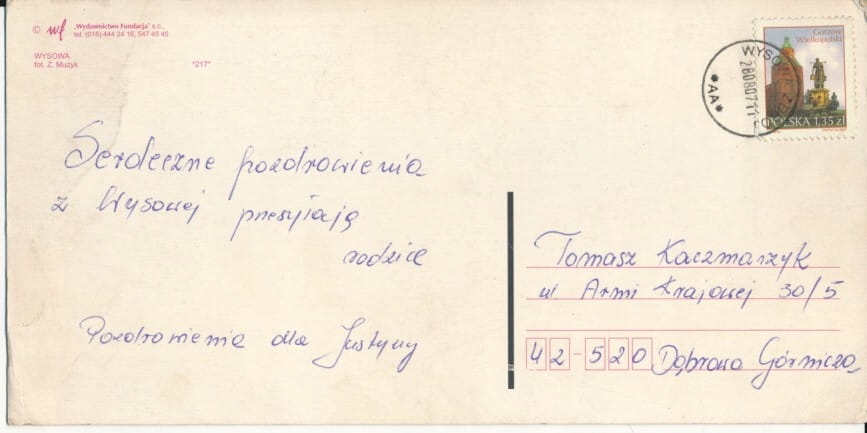 © wf „Wydawnictwo Fundacja" s.c.,
tel. (018) 444 24 16, 547 45 45
WYSOWA
fot. Z. Muzyk
*217*
Gorzów
Wielkopolski
POLSKA 1,35 zł
280807
*AA*
Serdeczne pozdrowienia
z Wysowej przesyłają
rodzice
Pozdrowienia dla Justyny
Tomasz Kaczmarzyk
ul Armi Krajowej 30/5
42-520 Dąbrowa Górnicza